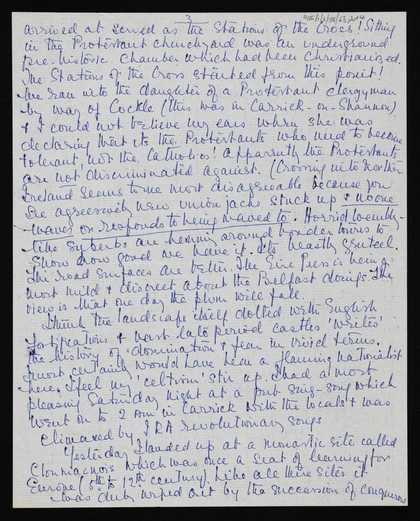 3
arrived at served as the Stations of the Cross! Sitting
in the Protestant churchyard was an underground
pre-historic chamber which had been Christianized.
The Stations of the Cross started from this point!
We ran into the daughter of a Protestant clergyman
by way of Cockle (this was in Carrick-on-Shannon)
& I could not believe my ears when she was
declaring that its the Protestants who need to become
tolerant, not the Catholics! Apparently the Protestants
are not discriminated against. Crossing into Northern
Ireland seems to me most disagreeable because you
see aggressively new union jacks stuck up & no one
waves or responds to being waved to. Horrid wealthy
like suburbs are hanging around border towns to
show how good we have it.
The road surfaces are better. The Eire Press is being
most mild & discreet about the Belfast doings. The
view is that one day the plum will fall.
I think the landscape itself dotted with English
fortifications & vast late period castles 'writes'
the history of domination & fear in vivid terms.
I most certainly would have been a flaming nationalist
here. I feel my 'celtism' stir up. I had a most
pleasing Saturday night at a pub sing-song which
went on to 2 am in Carrick with the locals & was
climaxed by IRA revolutionary songs
Yesterday I landed up at a monastic site called
Clonmacnois which was once a seat of learning for
Europe (to 12th century). Like all these sites it
was duly wiped out by the succession of conquerors